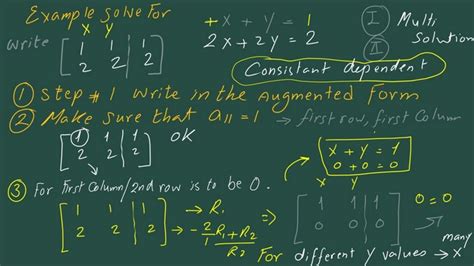 Example solve For
x y
write [ 1 1 | 1
2 2 | 2 ]
+x + y = 1
2x + 2y = 2
I
II
Multi
Solution
Consistant dependent
① Step #1 write in the Augmented Form
② Make sure that a11 = 1 → first row, first Column
[ 1 1 | 1
2 2 | 2 ] OK
x + y = 1
0 + 0 = 0
③ For first Column/2nd row is to be 0.
x y
[ 1 1 | 1
2 2 | 2 ]
→ R1
→ -2/1 R1 + R2
R2
⇒
[ 1 1 | 1
0 0 | 0 ]
0 = 0
many
For different y values → x